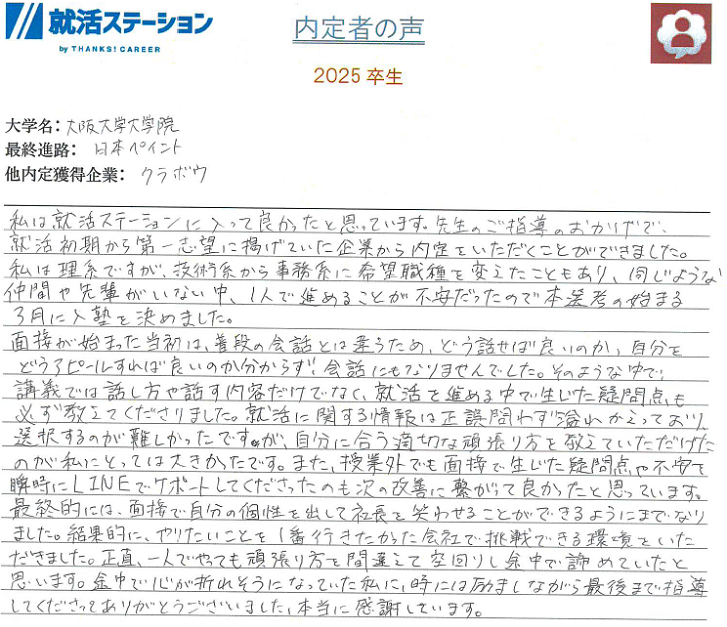 就活ステーション
by THANKS! CAREER
内定者の声
2025 卒生
大学名：大阪大学大学院
最終進路：日本ペイント
他内定獲得企業：クラボウ
私は就活ステーションに入って良かったと思っています。先生のご指導のおかげで、
就活初期から第一志望に掲げていた企業から内定をいただくことができました。
私は理系ですが、技術系から事務系に希望職種を変えたこともあり、同じような
仲間や先輩がいない中、1人で進めることが不安だったので本選考の始まる
3月に入塾を決めました。
面接が始まった当初は、普段の会話とは違うため、どう話せば良いのか、自分を
どうアピールすれば良いのか分からず、会話にもなりませんでした。そのような中で、
講義では話し方や話す内容だけでなく、就活を進める中で生じた疑問点も
必ず教えてくださりました。就活に関する情報は正誤問わず溢れかえっており、
選択するのが難しかったですが、自分に合う適切な頑張り方を教えていただけた
のが私にとっては大きかったです。また、授業外でも面接で生じた疑問点や不安を
瞬時にLINEでサポートしてくださったのも次の改善に繋がって良かったと思っています。
最終的には、面接で自分の個性を出して社長を笑わせることができるようにまでなり
ました。結果的に、やりたいことを1番行きたかった会社で挑戦できる環境をいた
だきました。正直、一人でやっても頑張り方を間違えて空回りし途中で諦めていたと
思います。途中で心が折れそうになっていた私に、時には励ましながら最後まで指導
してくださってありがとうございました。本当に感謝しています。